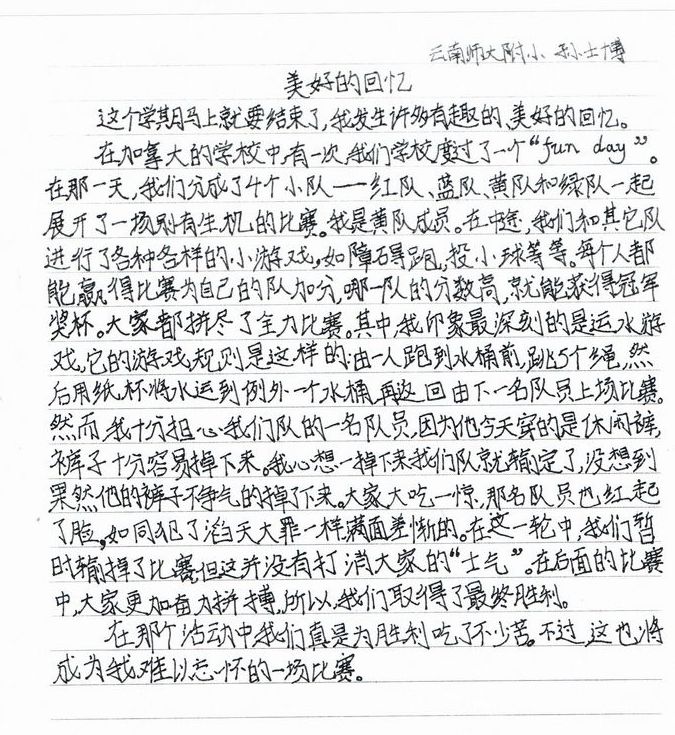 云南师大附小 孙士博
美好的回忆
这个学期马上就要结束了,我发生许多有趣的、美好的回忆。
在加拿大的学校中,有一次,我们学校度过了一个“fun day”。
在那一天,我们分成了4个小队——红队、蓝队、黄队和绿队一起
展开了一场别有生机的比赛。我是黄队成员。在中途,我们和其它队
进行了各种各样的小游戏,如障碍跑、投小球等等。每个人都
能赢得比赛为自己的队加分,哪一队的分数高,就能获得冠军
奖杯。大家都拼尽了全力比赛。其中,我印象最深刻的是运水游
戏,它的游戏规则是这样的:由一人跑到水桶前,跳5个绳,然
后用纸杯将水运到例外一个水桶,再返回由下一名队员上场比赛。
然而,我十分担心我们队的一名队员,因为他今天穿的是休闲裤,
裤子十分容易掉下来。我心想一掉下来我们队就输定了,没想到
果然他的裤子不争气的掉了下来。大家大吃一惊,那名队员也红起
了脸,如同犯了滔天大罪一样满面羞惭的。在这一轮中,我们暂
时输掉了比赛,但这并没有打消大家的“士气”。在后面的比赛
中,大家更加奋力拼搏,所以,我们取得了最终胜利。
在那个活动中我们真是为胜利吃了不少苦。不过,这也将
成为我难以忘怀的一场比赛。